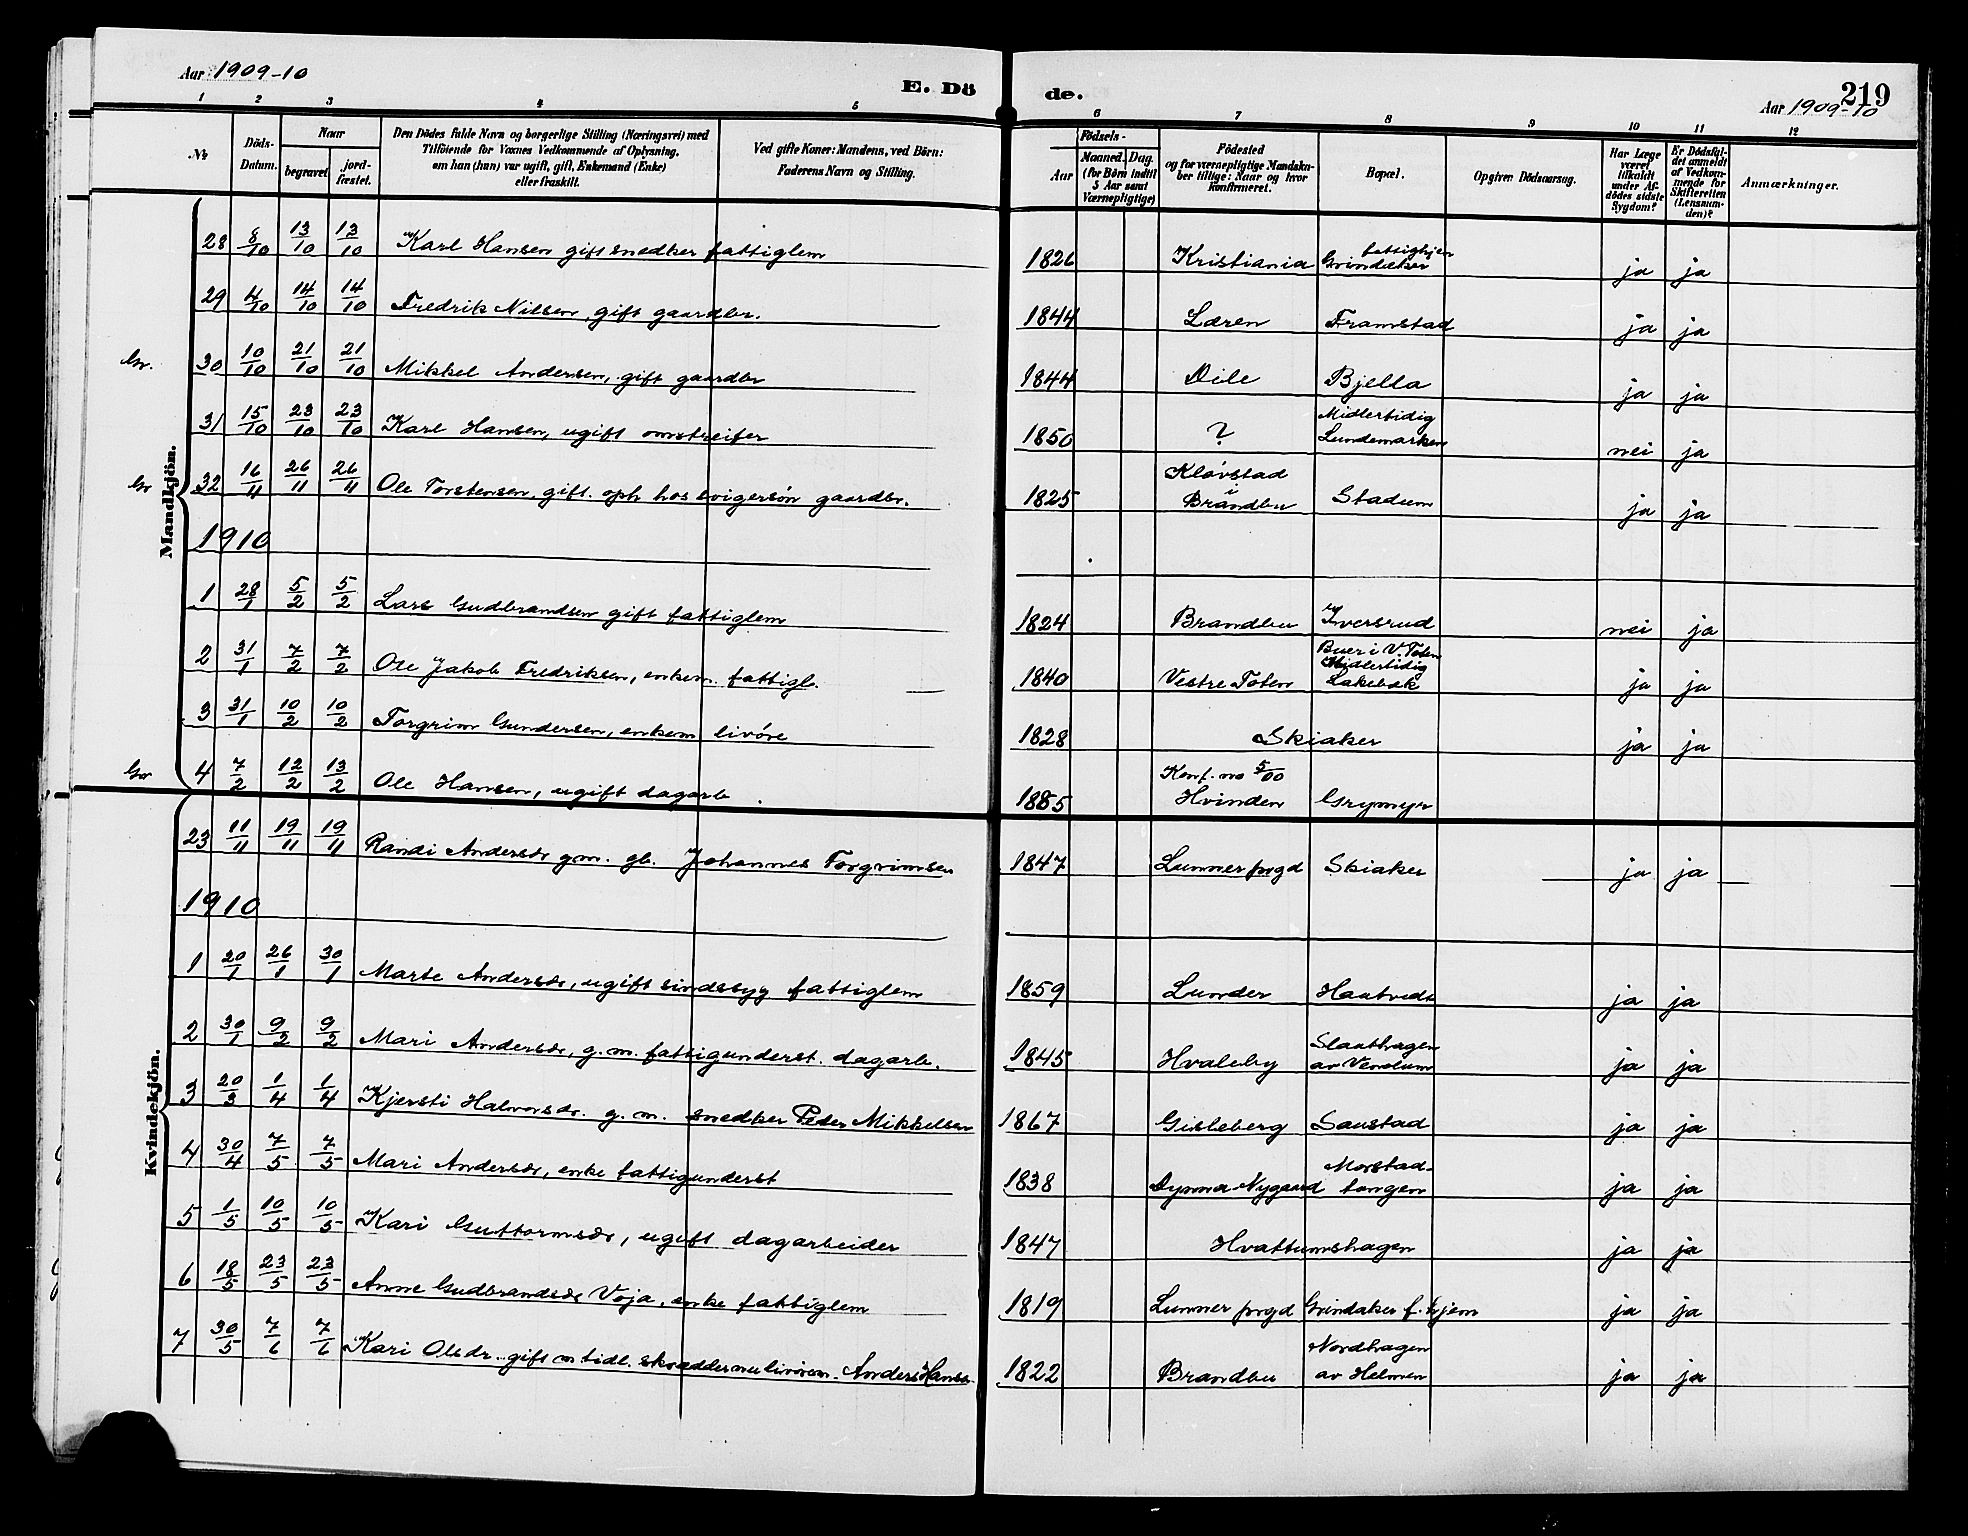 Aar 1909-10
E. Dö
de.
219
Aar 1909-10
1 2 3 4 5 6 7 8 9 10 11 12
№
Döds-Datum.
Naar
begravet
jord-fæstet.
Den Dödes fulde Navn og borgerlige Stilling (Næringsvei) med
Tilföiende for Voxnes Vedkommende af Oplysning,
om han (hun) var ugift, gift, Enkemand (Enke)
eller fraskilt.
Ved gifte Koner: Mandens, ved Börn:
Faderens Navn og Stilling.
Födsels-
Aar
Maaned. Dag.
(for Börn indtil
5 Aar samt
Værnepligtige)
Födested
og for værnepligtige Mandska-
ber tillige: Naar og hvor
Konfirmeret.
Bopæl.
Opgiven Dödsaarsag.
Har Læge
været
tilkaldt
under Af-
dödes sidste
Sygdom?
Er Dödsfal-
det anmeldt
af Vedkom-
mende for
Skifteretten
(Lensman-
den)?
Anmærkninger.
Mandkjön.
28 8/10 13/10 13/10 Karl Hansen gift snedker fattiglem 1826 Kristiania Grindaker fattighjem ja ja
29 4/10 14/10 14/10 Fredrik Nilsen, gift gaardbr. 1844 Læren Framstad ja ja
Gr. 30 10/10 21/10 21/10 Mikkel Andersen, gift gaardbr 1844 Oile Bjella ja ja
31 15/10 23/10 23/10 Karl Hansen, ugift omstreifer 1850 ? Midlertidig Lundemarken nei ja
Gr 32 16/11 26/11 26/11 Ole Torstensen, gift. oph hos svigersön gaardbr. 1825 Klövstad i Brandbu Stadum ja ja
1910
1 28/1 5/2 5/2 Lars Gudbrandsen gift fattiglem 1824 Brandbu Iversrud nei ja
2 31/1 7/2 7/2 Ole Jakob Fredriksen, enkem. fattigl. 1840 Vestre Toten Buer i V. Toten Midlertidig Lakebæk ja ja
3 31/1 10/2 10/2 Torgrim Gundersen, enkem livöre 1828 Skiaker ja ja
Gr 4 7/2 12/2 13/2 Ole Hansen, ugift dagarb. 1885 Konf. no 5/00 Hvinden Grymyr
Kvindekjön.
23 11/11 19/11 19/11 Randi Andersdr gm. gb. Johannes Torgrimsen 1847 Lunner prgd Skiaker ja ja
1910
1 20/1 26/1 30/1 Marte Andersdr, ugift sindssyg fattiglem 1859 Lunder Haatvedt ja ja
2 30/1 9/2 9/2 Mari Andersdr, g. m. fattigunderst. dagarb. 1845 Hvaleby Slaathagen av Vendum ja ja
3 20/3 1/4 1/4 Kjersti Halvorsdr. g. m. snedker Peder Mikkelsen 1867 Gisleberg Saustad ja ja
4 30/4 7/5 7/5 Mari Andersdr, enke fattigunderst 1838 Dynna Nygaard Morstad-tangen ja ja
5 1/5 10/5 10/5 Kari Guttormsdr, ugift dagarbeider 1847 Hvattumshagen ja ja
6 18/5 23/5 23/5 Anne Gudbrandsdr Voja, enke fattiglem 1819 Lunner prgd Grindaker f. hjem ja ja
7 30/5 7/6 7/6 Kari Olsdr. gift m tidl. skrædder nu livörem. Anders Hanss. 1822 Brandbu Nordhagen av Helmen ja ja